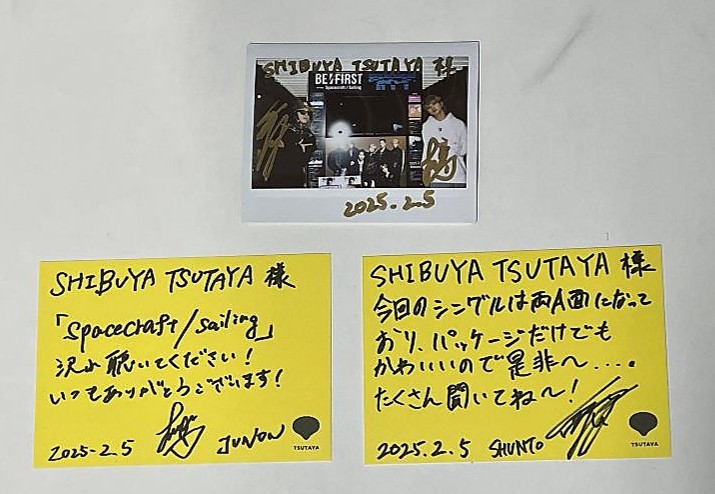 SHIBUYA TSUTAYA 様
BE:FIRST
Spacecraft / Sailing
2025.2.5
SHIBUYA TSUTAYA 様
「Spacecraft/Sailing」
沢山聴いてください!
いつもありがとうございます!
2025.2.5
JUNON
TSUTAYA
SHIBUYA TSUTAYA 様
今回のシングルは両A面になって
おり、パッケージだけでも
かわいいので是非〜....
たくさん聞いてね〜!
2025.2.5
SHUNTO
TSUTAYA